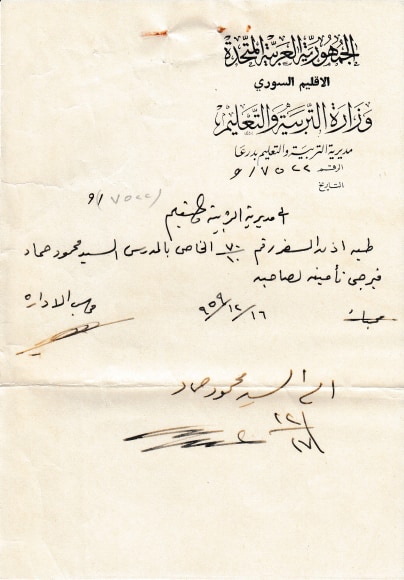 الجمهورية العربية المتحدة
الاقليم السوري
وزارة التربية والتعليم
مديرية التربية والتعليم بدرعا
الرقم ٧٥٢٢ / و
التاريخ
الى مديرية التربية والتعليم
طيه اذن السفر رقم ٧٠/١٠ الخاص بالمدرس السيد محمود حماد
فيرجى تأمينه لصاحبه
٩٥٩/١٢/١٦
الادارة
السيد محمود حماد
١٢/٢٧